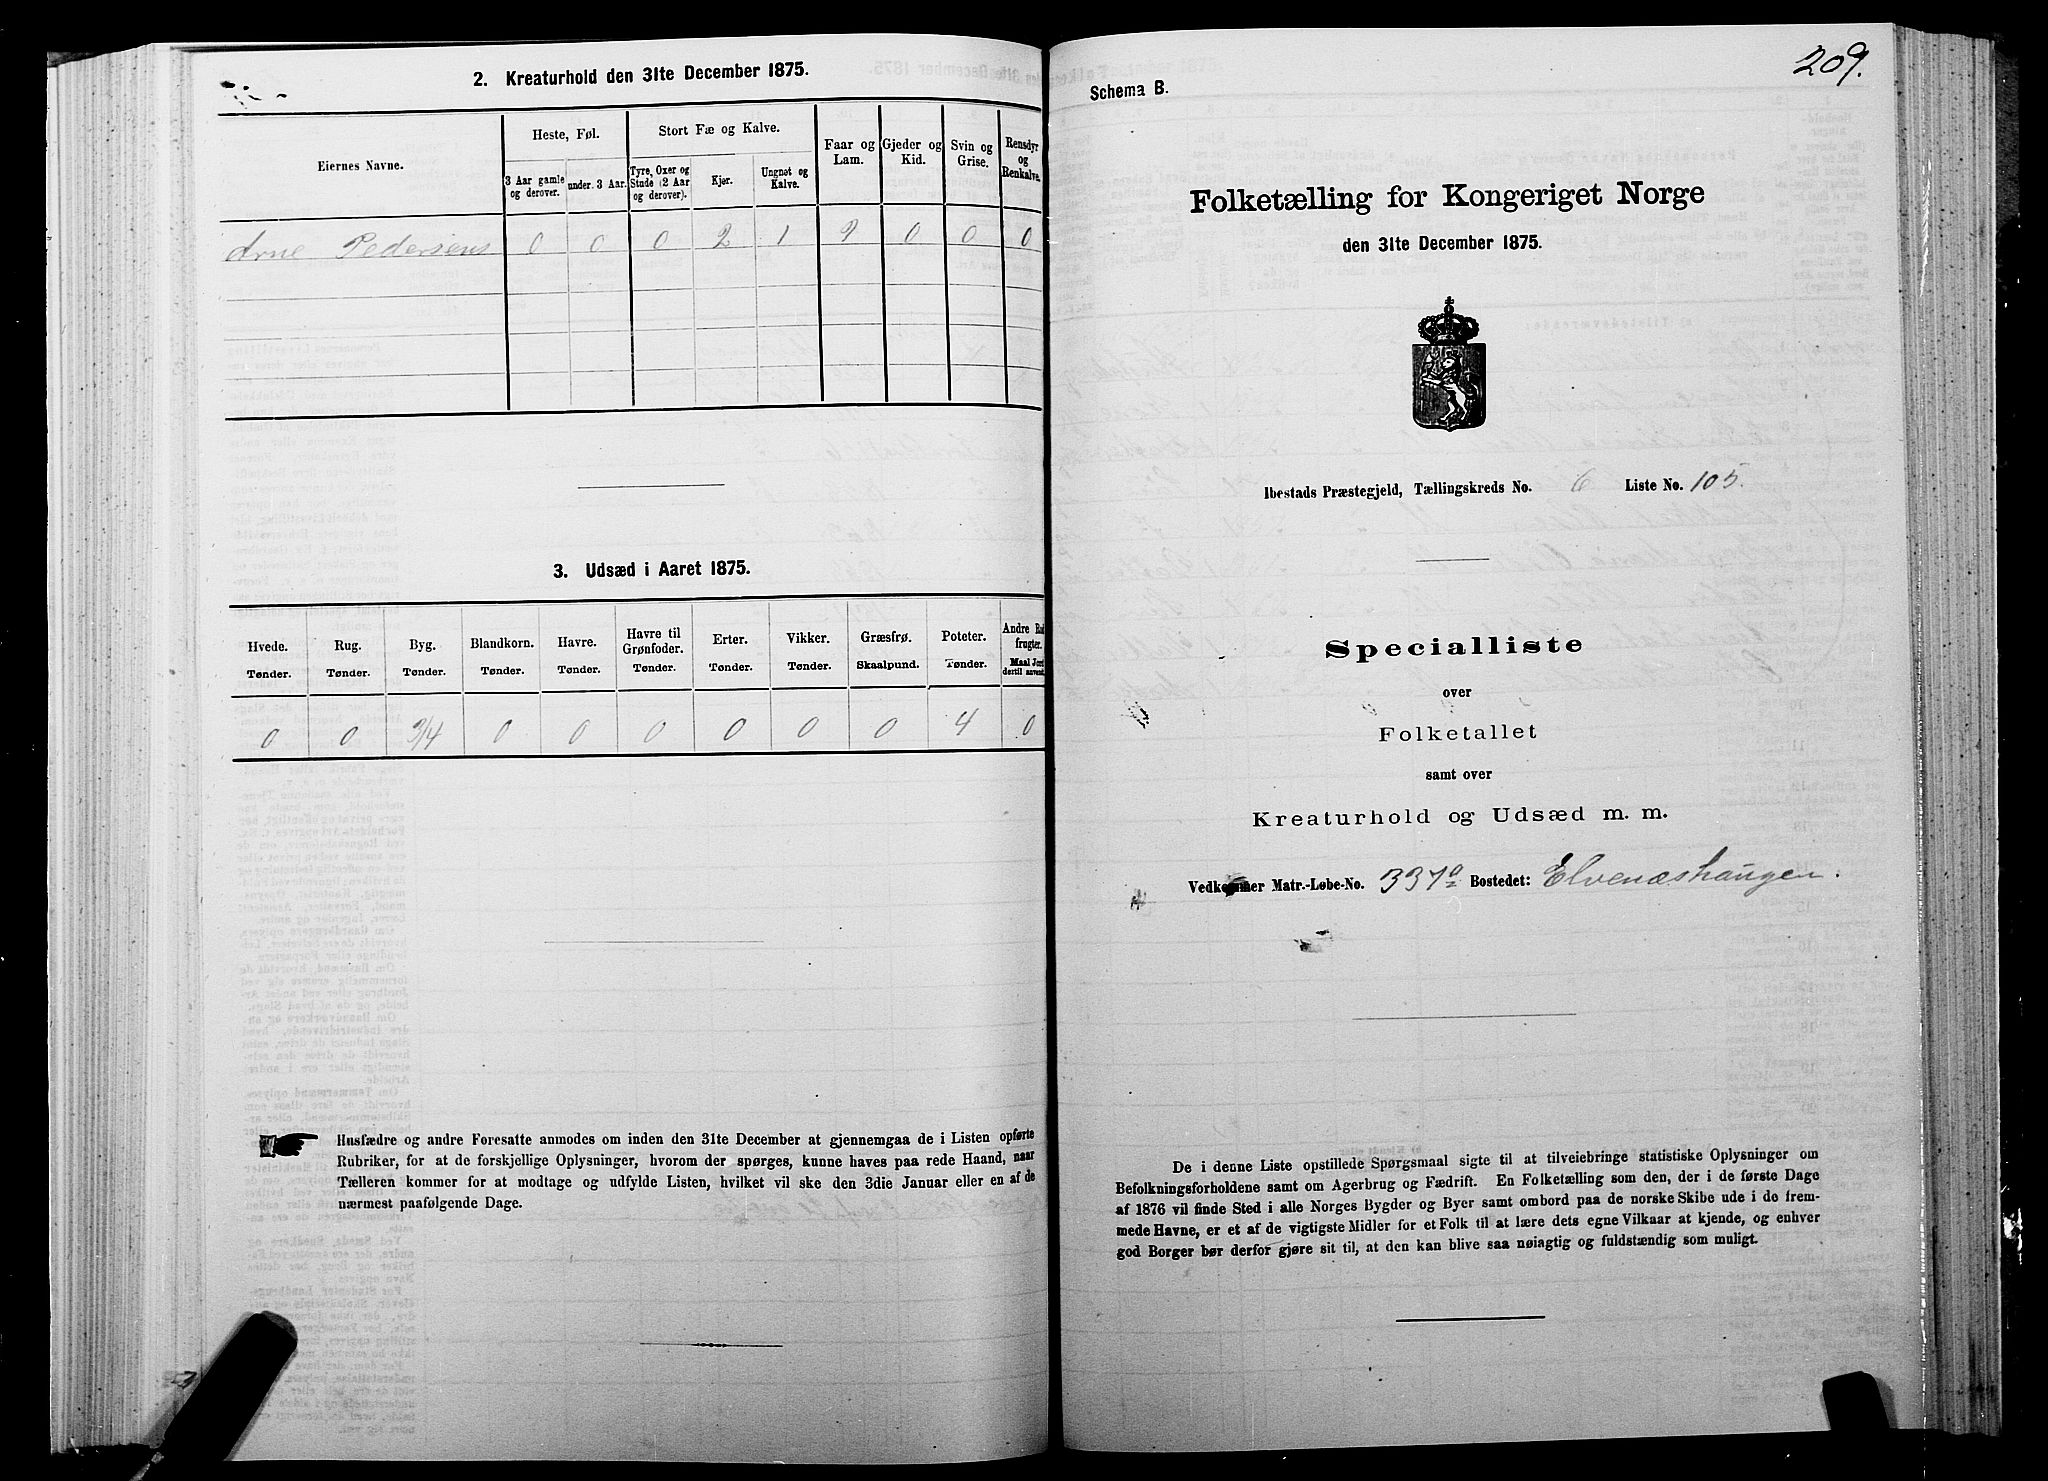 2. Kreaturhold den 31te December 1875.
Eiernes Navne.
Heste, Føl.
Stort Fæ og Kalve.
Faar og Lam.
Gjeder og Kid.
Svin og Grise.
Rensdyr og Renkalve.
3 Aar gamle og derover.
under 3 Aar.
Tyre, Oxer og Stude (2 Aar og derover).
Kjør.
Ungnøt og Kalve.
Arne Pedersens 0 0 0 2 1 9 0 0 0
3. Udsæd i Aaret 1875.
Hvede. Rug. Byg. Blandkorn. Havre. Havre til Grønfoder. Erter. Vikker. Græsfrø. Poteter. Andre Rodfrugter.
Tønder. Tønder. Tønder. Tønder. Tønder. Tønder. Tønder. Tønder. Skaalpund. Tønder. Maal Jord dertil anvendt.
0 0 3/4 0 0 0 0 0 0 4 0
Husfædre og andre Foresatte anmodes om inden den 31te December at gjennemgaa de i Listen opførte
Rubriker, for at de forskjellige Oplysninger, hvorom der spørges, kunne haves paa rede Haand, naar
Tælleren kommer for at modtage og udfylde Listen, hvilket vil ske den 3die Januar eller en af de
nærmest paafølgende Dage.
209.
Schema B.
Folketælling for Kongeriget Norge
den 31te December 1875.
Ibestads Præstegjeld, Tællingskreds No. 6 Liste No. 105.
Specialliste
over
Folketallet
samt over
Kreaturhold og Udsæd m. m.
Vedkommer Matr.-Løbe-No. 337a Bostedet: Elvenæshaugen.
De i denne Liste opstillede Spørgsmaal sigte til at tilveiebringe statistiske Oplysninger om
Befolkningsforholdene samt om Agerbrug og Fædrift. En Folketælling som den, der i de første Dage
af 1876 vil finde Sted i alle Norges Bygder og Byer samt ombord paa de norske Skibe ude i de frem-
mede Havne, er et af de vigtigste Midler for et Folk til at lære dets egne Vilkaar at kjende, og enhver
god Borger bør derfor gjøre sit til, at den kan blive saa nøiagtig og fuldstændig som muligt.